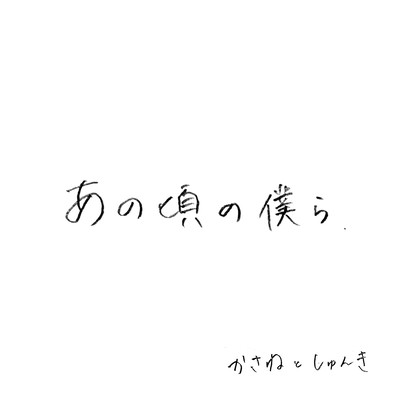 あの頃の僕ら.
かさねとしゅんき